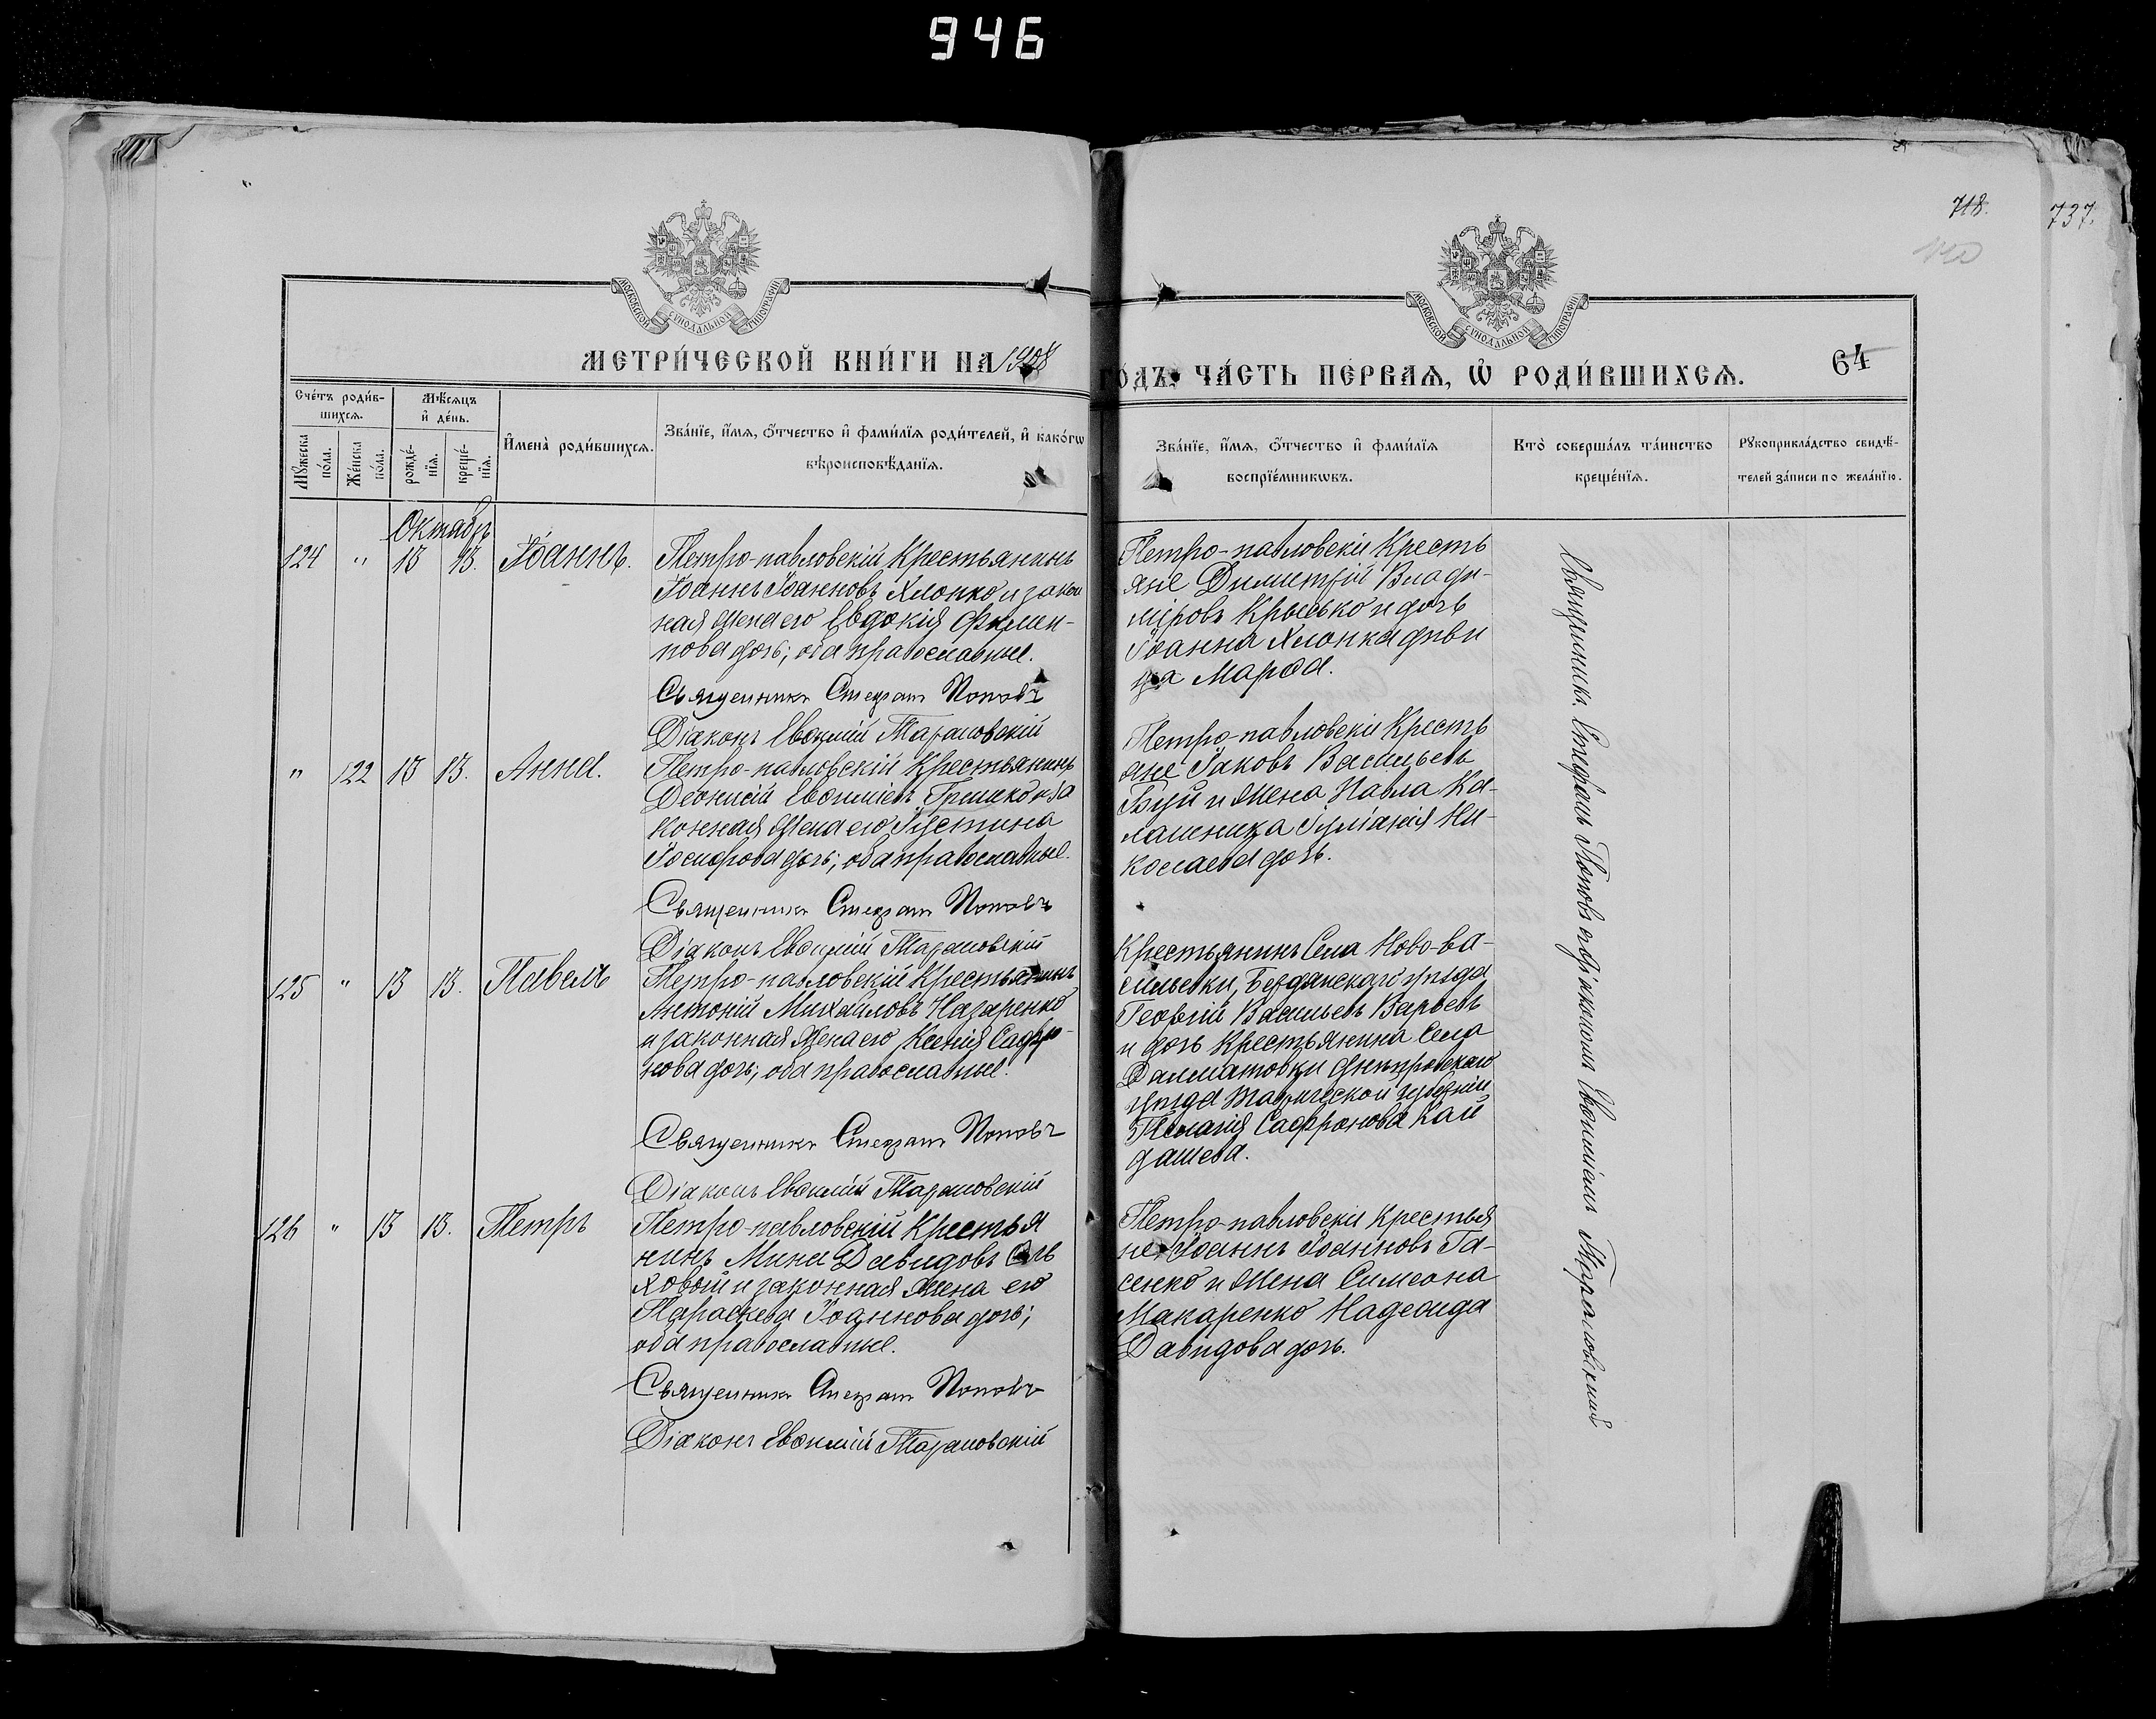 946
718.
737.
МОСКОВСКОЙ СѴНОДАЛЬНОЙ ТИПОГРАФІИ
МОСКОВСКОЙ СѴНОДАЛЬНОЙ ТИПОГРАФІИ
МЕТРИ́ЧЕСКОЙ КНИ́ГИ НА 1908
ГО́ДЪ, ЧА́СТЬ ПЕ́РВАѦ, Ѡ РОДИ́ВШИХСѦ.
64
Сче́тъ роди́в-
шихсѧ.
Мѣ́сѧцъ
и҆ де́нь.
Мꙋ́жеска
по́ла.
Же́нска
по́ла.
рожде́-
нїѧ.
креще́-
нїѧ.
И҆мена̀ роди́вшихсѧ.
Зва́нїе, и҆́мѧ, ѻ҆́тчество и҆ фами́лїѧ роди́телей, и҆ како́гѡ
вѣроисповѣ́данїѧ.
Зва́нїе, и҆́мѧ, ѻ҆́тчество и҆ фами́лїѧ
воспрїе́мникѡвъ.
Кто̀ соверша́лъ та́инство
креще́нїѧ.
Рꙋкоприкла́дство свидѣ́-
телей за́писи по жела́нїю.
Октябр
124 " 13 13. Іоаннъ.
Петро-павловскій Крестьянинъ
Іоаннъ Іоанновъ Хлопко и закон
ная жена его Евдокія Филип-
пова дочь; оба православные.
Священникъ Стефанъ Поповъ
Діаконъ Евѳимій Тарановскій
Петро-павловскіи Кресть
яне Димитрій Влади-
міровъ Крысько и дочь
Іоанна Хлопка дѣви
ца Марѳа.
" 122 13 13. Анна.
Петро-павловскій Крестьянинъ
Деонисій Евѳиміевъ Гришко и за
конная жена его Іустина
Іосифова дочь; оба православные.
Священникъ Стефанъ Поповъ
Діаконъ Евѳимій Тарановскій
Петро-павловскіи Кресть
яне Іаковъ Васильевъ
Буй и жена Павла Ка-
лашника Іуліанія Ни-
колаева дочь.
125 " 13 13. Павелъ
Петро-павловскій Крестьянинъ
Антоній Михаиловъ Назаренко
и законная жена его Ксенія Сафро-
нова дочь; оба православные.
Священникъ Стефанъ Поповъ
Діаконъ Евѳимій Тарановскій
Крестьянинъ Села Ново-ва-
сильевки, Бердянскаго уѣзда
Георгій Васильевъ
и дочь Крестьянина Села
Далматовки Днѣпровскаго
уѣзда Таврической губерніи
Пелагія Сафронова Кай
дашева.
126 " 13 13. Петръ
Петро-павловскій Крестья
нинъ Мина Давидовъ Оль
ховой и законная жена его
Параскева Іоаннова дочь;
оба православные.
Священникъ Стефанъ Поповъ
Діаконъ Евѳимій Тарановскій
Петро-павловскіи Крестья
не Іоаннъ Іоанновъ Га-
сенко и жена Симеона
Макаренко Надежда
Давидова дочь.
Священникъ Стефанъ Поповъ съ діакономъ Евѳиміемъ Тарановскимъ